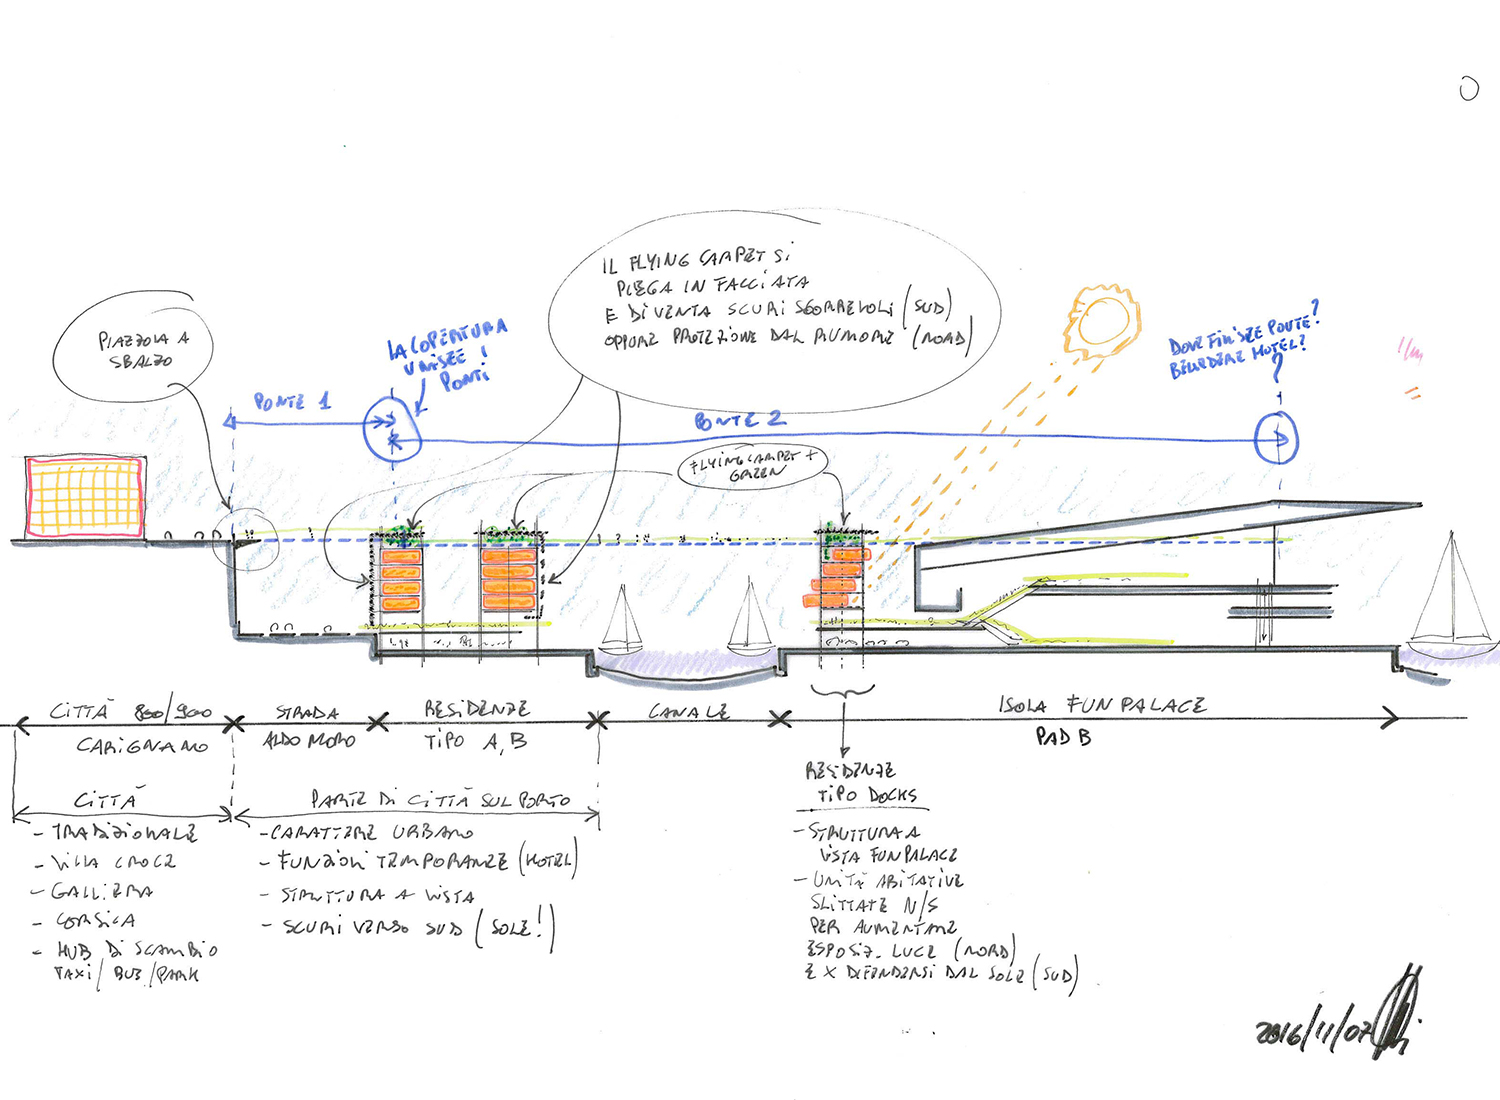 PIAZZOLA A
SBALZO
PONTE 1
LA COPERTURA
UNISCE !
PONTI
IL FLYING CARPET SI
PIEGA IN FACCIATA
E DIVENTA SCURI SCORREVOLI (SUD)
OPPURE PROTEZIONE DAL RUMORE (NORD)
PONTE 2
FLYING CARPET +
GREEN
DOVE FINISCE PONTE?
BELVEDERE HOTEL?
?
CITTÀ 800/900
CARIGNANO
STRADA
ALDO MORO
RESIDENZE
TIPO A, B
CANALE
ISOLA FUN PALACE
PAD B
CITTÀ
- TRADIZIONALE
- VILLA CROCE
- GALLIERA
- CORSICA
- HUB DI SCAMBIO
TAXI/BUS/PARK
PARTE DI CITTÀ SUL PORTO
- CARATTERE URBANO
- FUNZIONI TEMPORANEE (HOTEL)
- STRUTTURA A VISTA
- SCURI VERSO SUD (SOLE!)
RESIDENZE
TIPO DOCKS
- STRUTTURA A
VISTA FUN PALACE
- UNITÀ ABITATIVE
SLITTATE N/S
PER AUMENTARE
ESPOSIZ. LUCE (NORD)
E X DIFENDERSI DAL SOLE (SUD)
2016/11/07